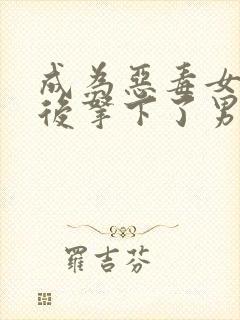 成為惡毒女
後拿下了男
羅吉芬